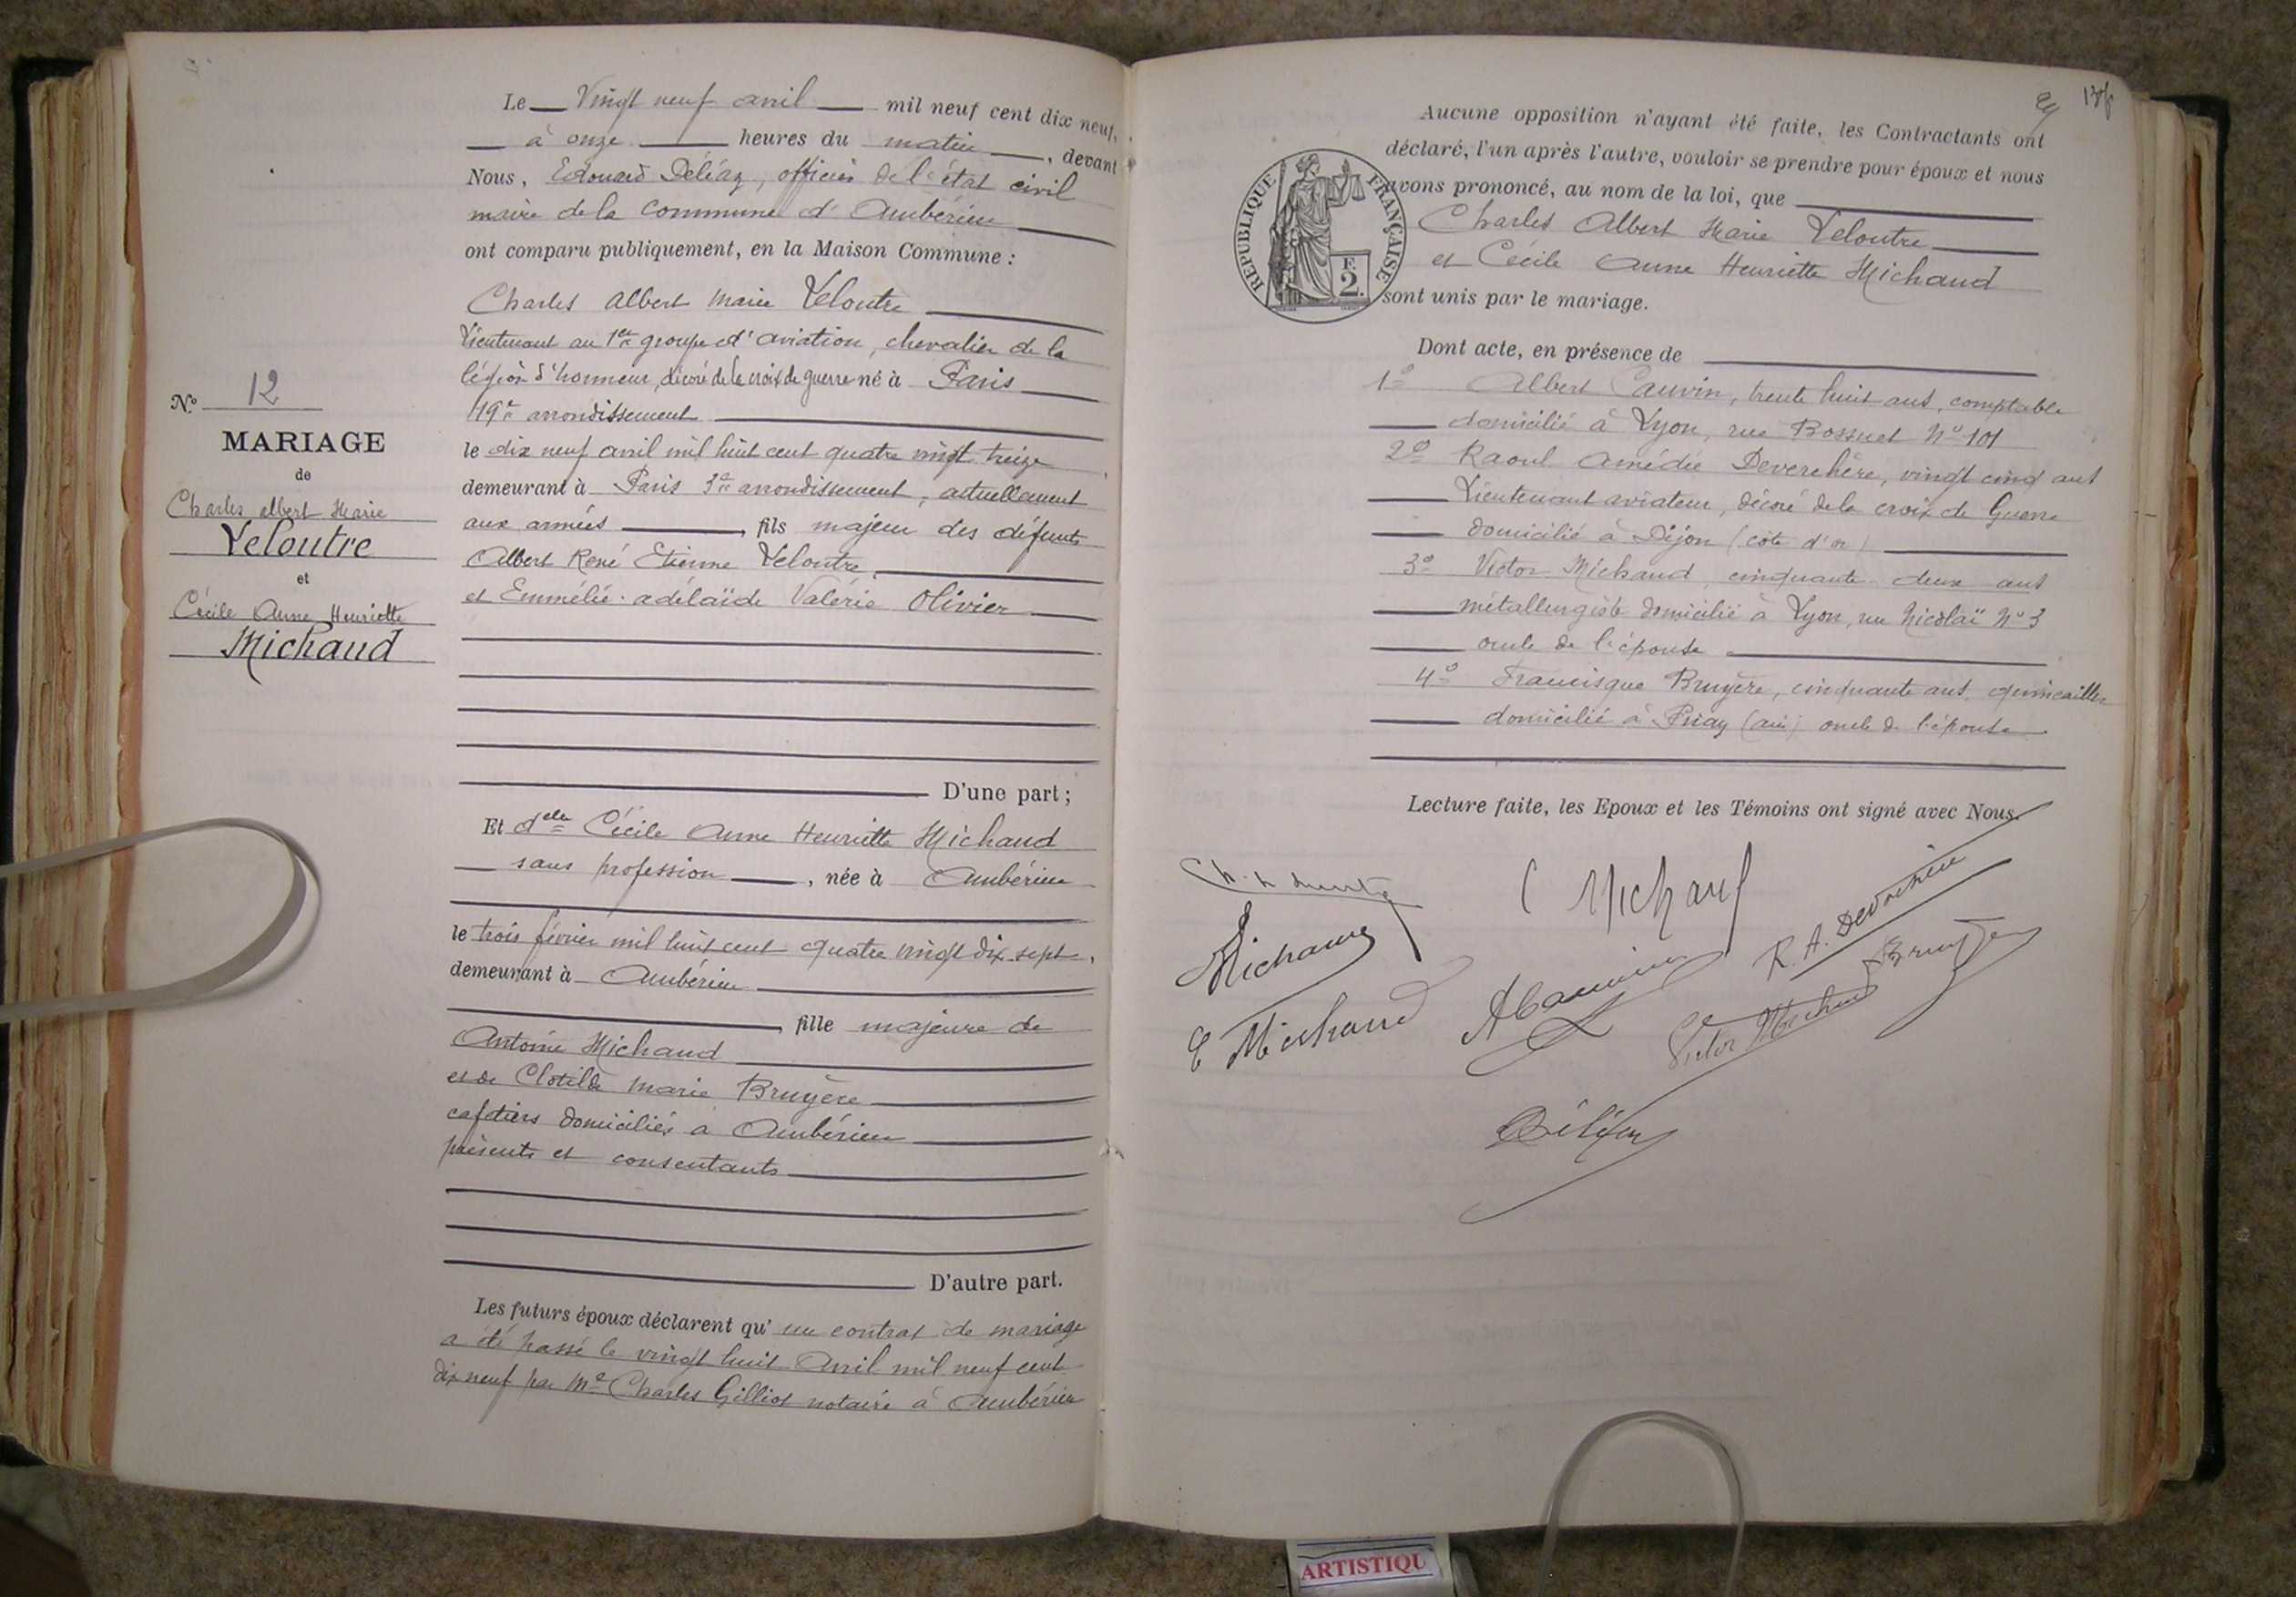 Le Vingt neuf avril mil neuf cent dix neuf,
à onze heures du matin, devant
Nous, Edouard Déléaz, officier de l'état civil
maire de la commune d'Ambérieu
ont comparu publiquement, en la Maison Commune :
Charles Albert Marie Leloutre
Lieutenant au 1er groupe d'aviation, chevalier de la
légion d'honneur, décoré de la croix de guerre né à Paris
19e arrondissement
le dix neuf avril mil huit cent quatre vingt treize
demeurant à Paris 3e arrondissement, actuellement
aux armées, fils majeur des défunts
Albert René Etienne Leloutre,
et Emmélie adélaïde Valérie Olivier
D'une part ;
N.o 12
MARIAGE
de
Charles albert Marie
Leloutre
et
Cécile Anne Henriette
Michaud
Et delle Cécile Anne Henriette Michaud
sans profession, née à Ambérieu
le trois février mil huit cent quatre vingt dix sept,
demeurant à Ambérieu
, fille majeure de
Antoine Michaud
et de Clotilde Marie Bruyère
cafetiers domiciliés à Ambérieu
présents et consentants
D'autre part.
Les futurs époux déclarent qu'un contrat de mariage
a été passé le vingt huit Avril mil neuf cent
dix neuf par Me Charles Gilliot notaire à Ambérieu
Aucune opposition n'ayant été faite, les Contractants ont
déclaré, l'un après l'autre, vouloir se prendre pour époux et nous
avons prononcé, au nom de la loi, que
Charles Albert Marie Leloutre
et Cécile Anne Henriette Michaud
sont unis par le mariage.
REPUBLIQUE FRANÇAISE
F.
2.
Dont acte, en présence de
1o Albert Cauvin, trente huit ans, comptable
domicilié à Lyon, rue Bossuet No 101
2o Raoul Amédée Deverchère, vingt cinq ans
Lieutenant aviateur, décoré de la croix de Guerre
domicilié à Dijon (côte d'or)
3o Victor Michaud cinquante deux ans
métallurgiste domicilié à Lyon, rue Nicolaï No 3
oncle de l'épouse
4o Francisque Bruyère, cinquante ans, quincailler
domicilié à Priay (ain) oncle de l'épouse
Lecture faite, les Epoux et les Témoins ont signé avec Nous.
C Michaud
Michaud
R. A. Deverchère
Bruyère
C Michaud
A Cauvin
Victor Michaud
Déléaz
ARTISTIQU